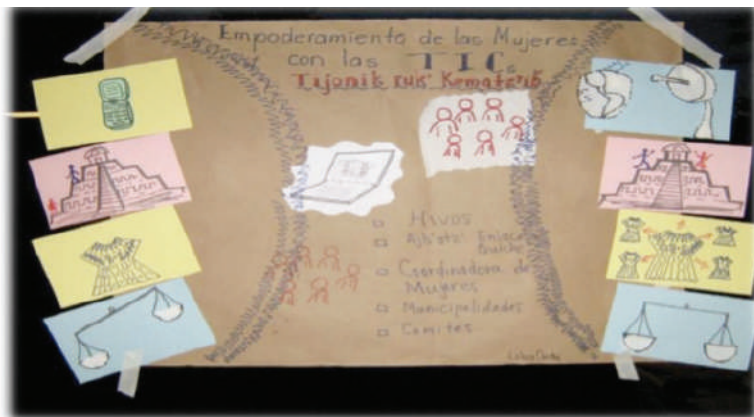 Empoderamiento de las Mujeres
con las TICs
Tijonik
HIVOS
Enlace
Quiché
Coordinadora de
Mujeres
Municipalidades
Comites